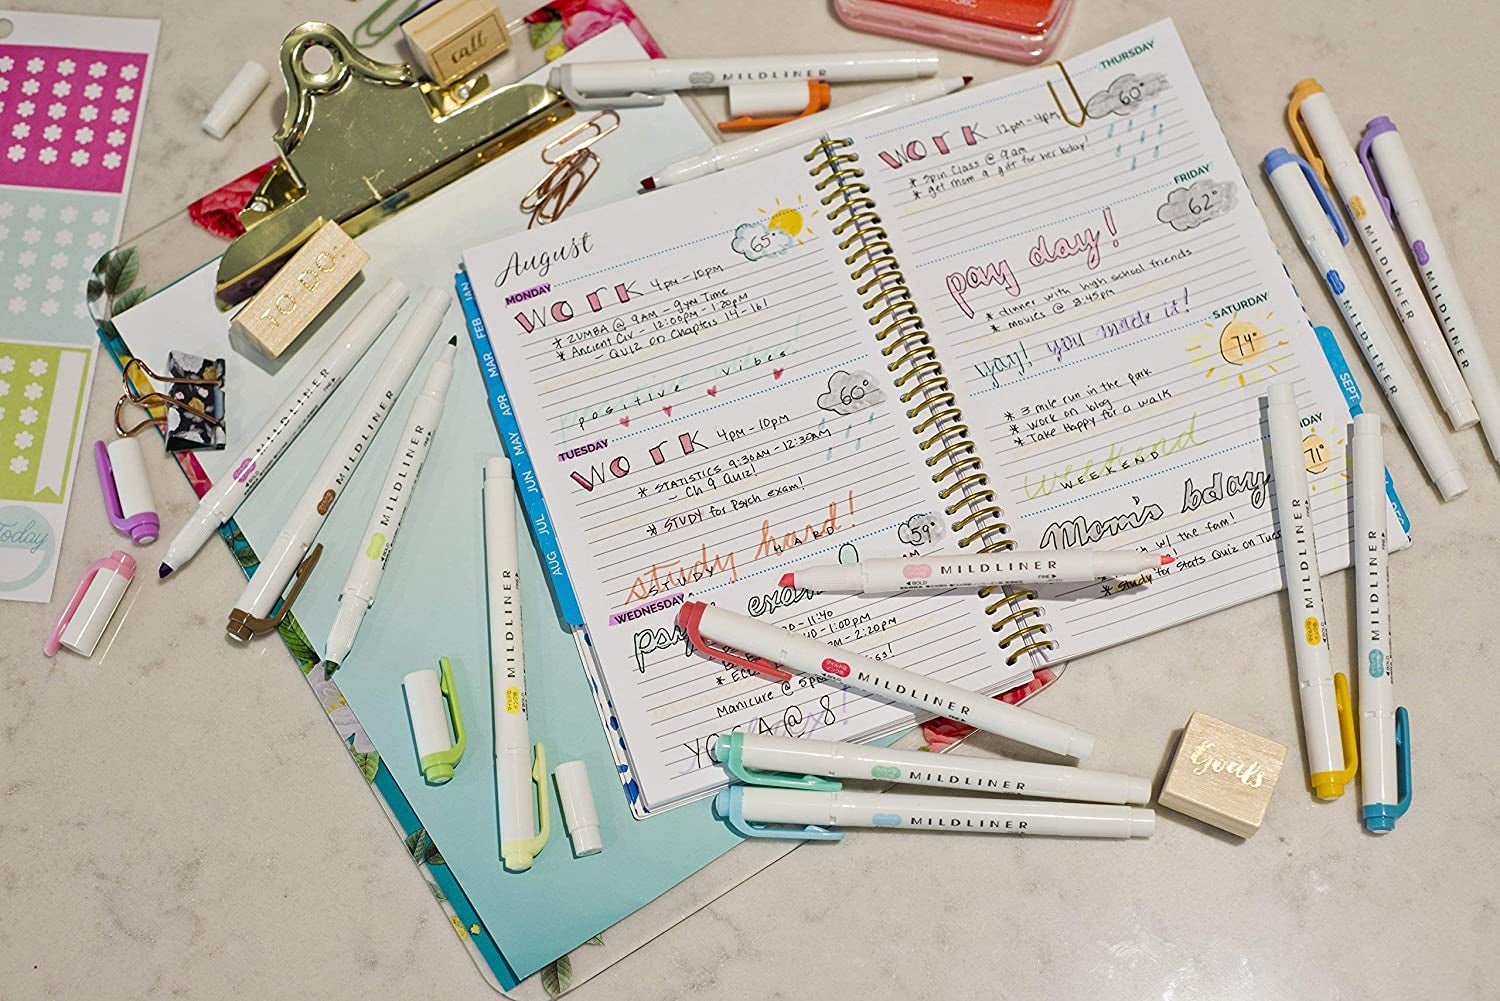 call
TO DO:
Today
MILDLINER
MILDLINER
MILDLINER
MILDLINER
MILDLINER
JAN
FEB
MAR
APR
MAY
JUN
JUL
AUG
August
MONDAY
65°
WORK 4pm - 10pm
* ZUMBA @ 9AM - gym Time
* Ancient Civ - 12:00pm - 1:20pm
- Quiz on Chapters 14-16!
positive vibes
TUESDAY
60°
WORK 4pm - 10pm
* STATISTICS 9:30AM - 12:30AM
- Ch 9 Quiz!
* STUDY for Psych exam!
study hard!
STUDY HARD
59°
WEDNESDAY
MILDLINER
BOLD
FINE
- 11:40
- 1:00pm
- 2:20pm
Manicure @ 5p
MILDLINER
YOGA @ 8
MILDLINER
MILDLINER
THURSDAY
60°
WORK 12pm - 4pm
* Spin Class @ 9am
* get mom a gift for her bday!
FRIDAY
62°
pay day!
* dinner with high school friends
* movies @ 8:45pm
yay! you made it!
SATURDAY
74°
* 3 mile run in the park
* Work on blog
* Take Happy for a walk
weekend
WEEKEND
71°
Mom's bday
w/ the fam!
* Study for Stats Quiz on Tues
SEPT
DEC
MILDLINER
MILDLINER
MILDLINER
MILDLINER
MILDLINER
Goals